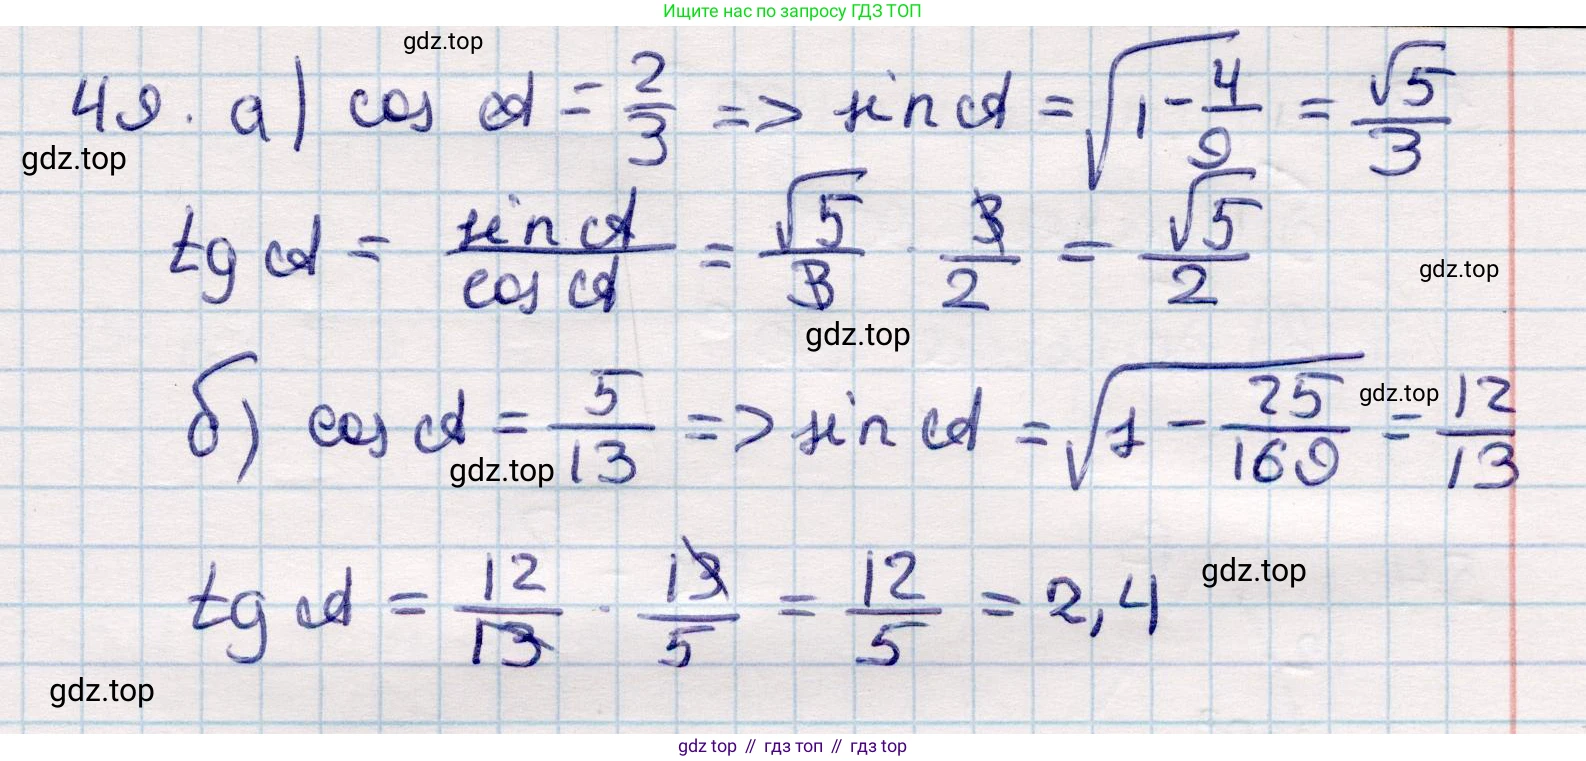 Ищите нас по запросу ГДЗ ТОП
gdz.top
49. а) cos α = 2/3 => sin α = √(1 - 4/9) = √5/3
gdz.top
tg α = sin α/cos α = √5/3 · 3/2 = √5/2
gdz.top
gdz.top
б) cos α = 5/13 => sin α = √(1 - 25/169) = 12/13
gdz.top
gdz.top
tg α = 12/13 · 13/5 = 12/5 = 2,4
gdz.top
gdz.top
gdz top // гдз топ // гдз top